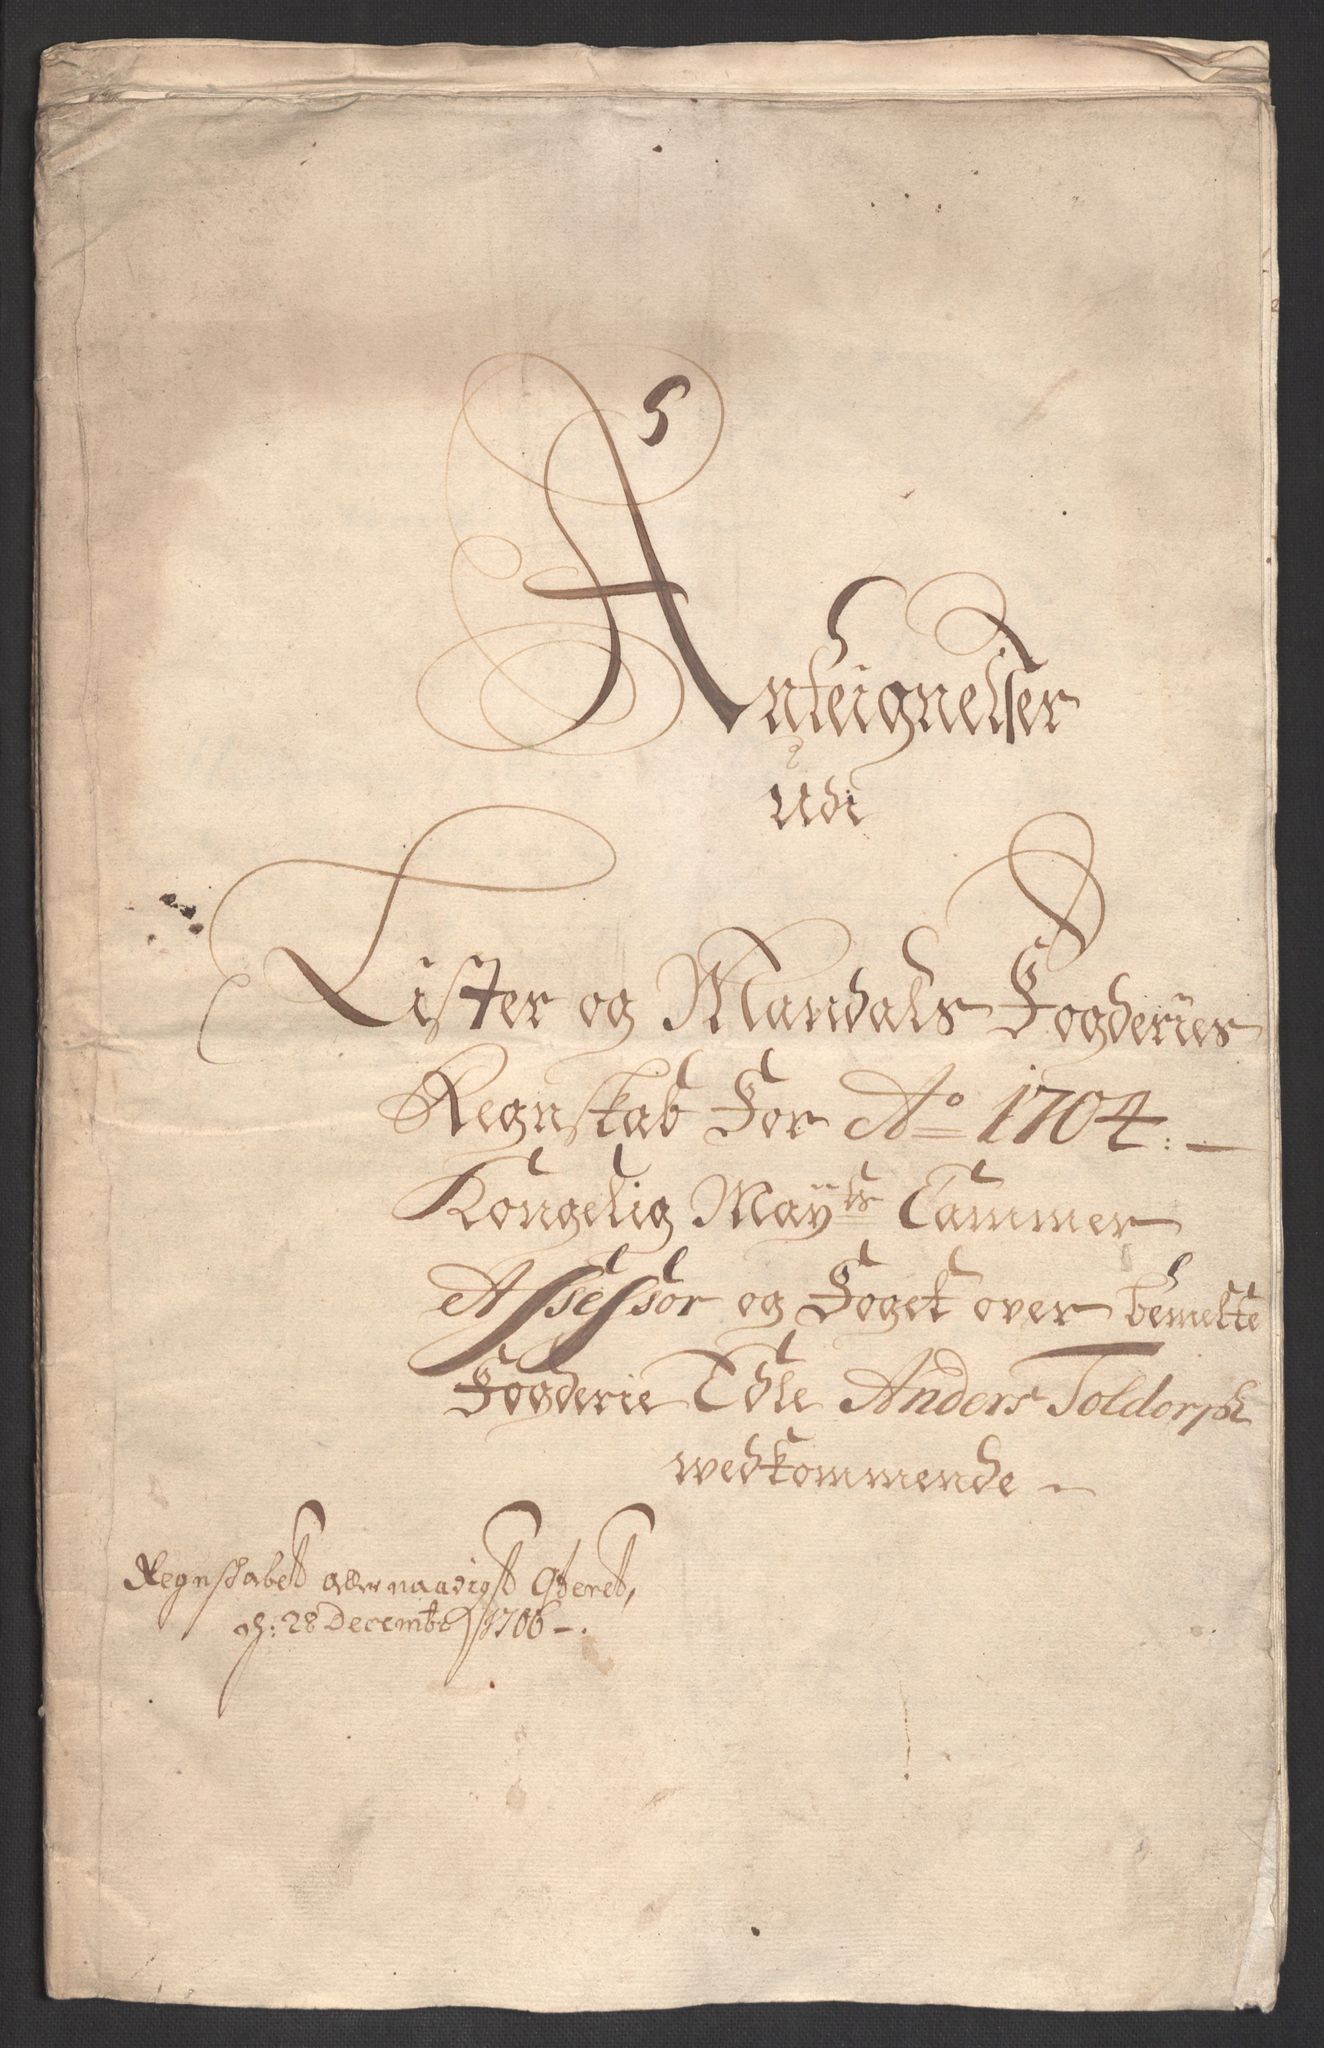 5
Anteignelser
udi
Lister og Mandals Fogderies
Regnskab For Ao 1704.
Kongelig Mayts Cammer
Assessor og Foget over bemelte
Fogderie Edle Anders Toldorph
wedkommende
Regnschabet allernaadigst qviteret,
d: 28 Decembr 1706